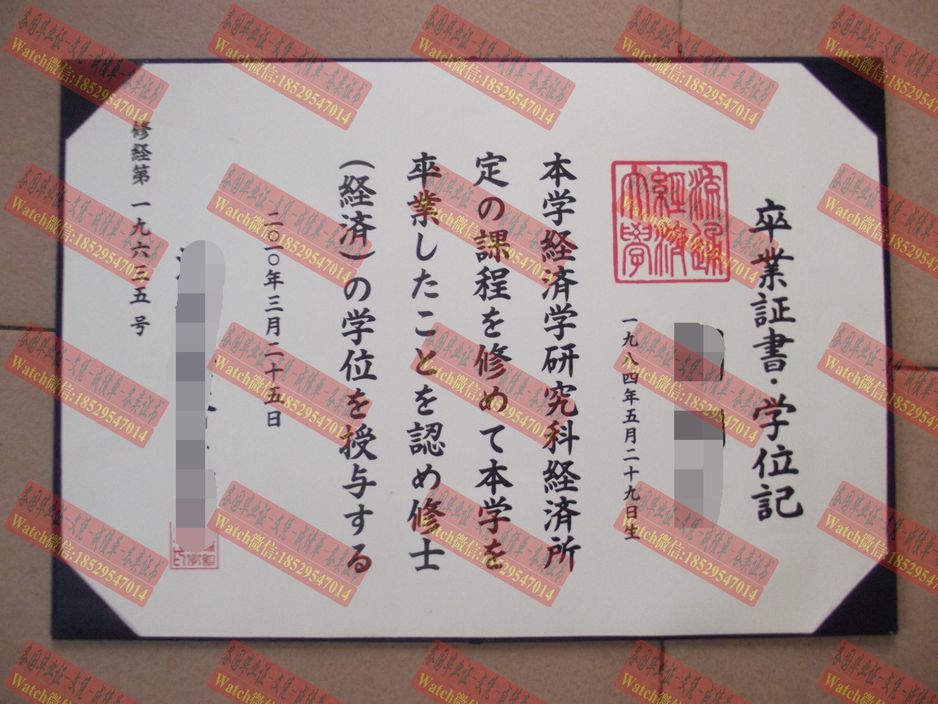 卒業証書・学位記
流通
経済
大學
一九八四年五月二十九日生
本学経済学研究科経済所
定の課程を修めて本学を
卒業したことを認め修士
(経済)の学位を授与する
二〇一〇年三月二十五日
修経第一九六三五号
Watch微信:18529547014